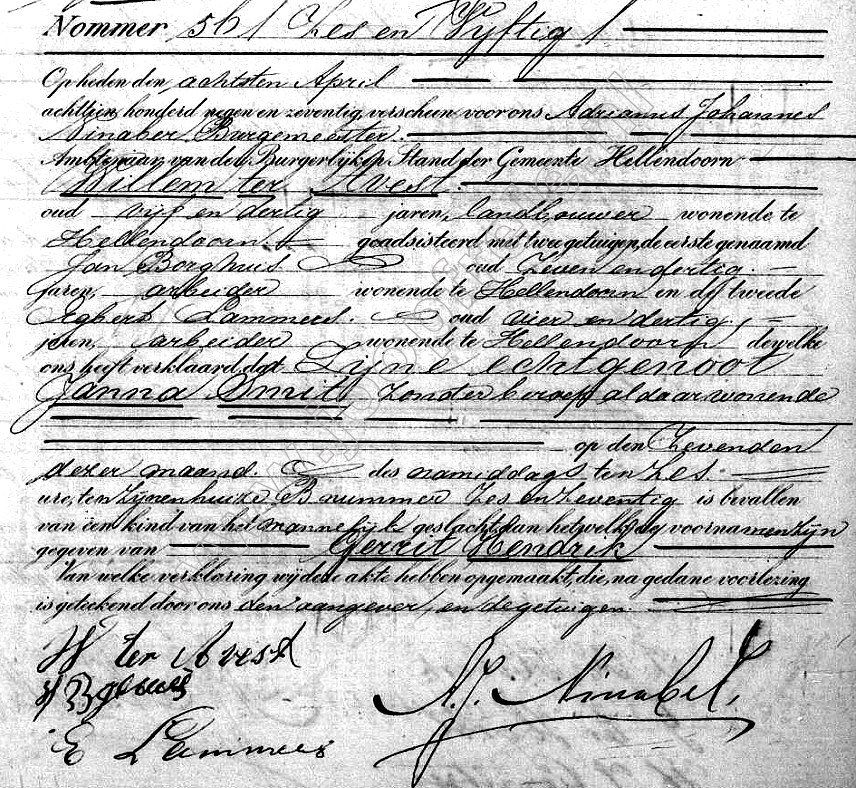 Nommer 56 / Zes en Vijftig /
Op heden den achtsten April
achttien honderd negen en zeventig, verscheen voor ons Adrianus Johannes
Ninaber Burgemeester
Ambtenaar van den Burgerlijken Stand der Gemeente Hellendoorn
Willem ter Avest
oud vijf en dertig jaren, landbouwer wonende te
Hellendoorn geadsisteerd met twee getuigen, de eerste genaamd
Jan Borghuis oud Zeven en dertig
jaren, arbeider wonende te Hellendoorn en de tweede
Egbert Lammers oud vier en dertig
jaren, arbeider wonende te Hellendoorn dewelke
ons heeft verklaard, dat Zijne echtgenoot
Janna Smit, zonder beroep aldaar wonende
op den Zevenden
dezer maand des namiddags ten zes
ure, ten zijnen huize B nummer Zes en Zeventig is bevallen
van een kind van het mannelijk geslacht aan hetwelk de voornamen zijn
gegeven van Gerrit Hendrik
Van welke verklaring wij deze akte hebben opgemaakt, die, na gedane voorlezing
is geteekend door ons den aangever en de getuigen
W ter Avest
E Lammers
A.J. Ninaber